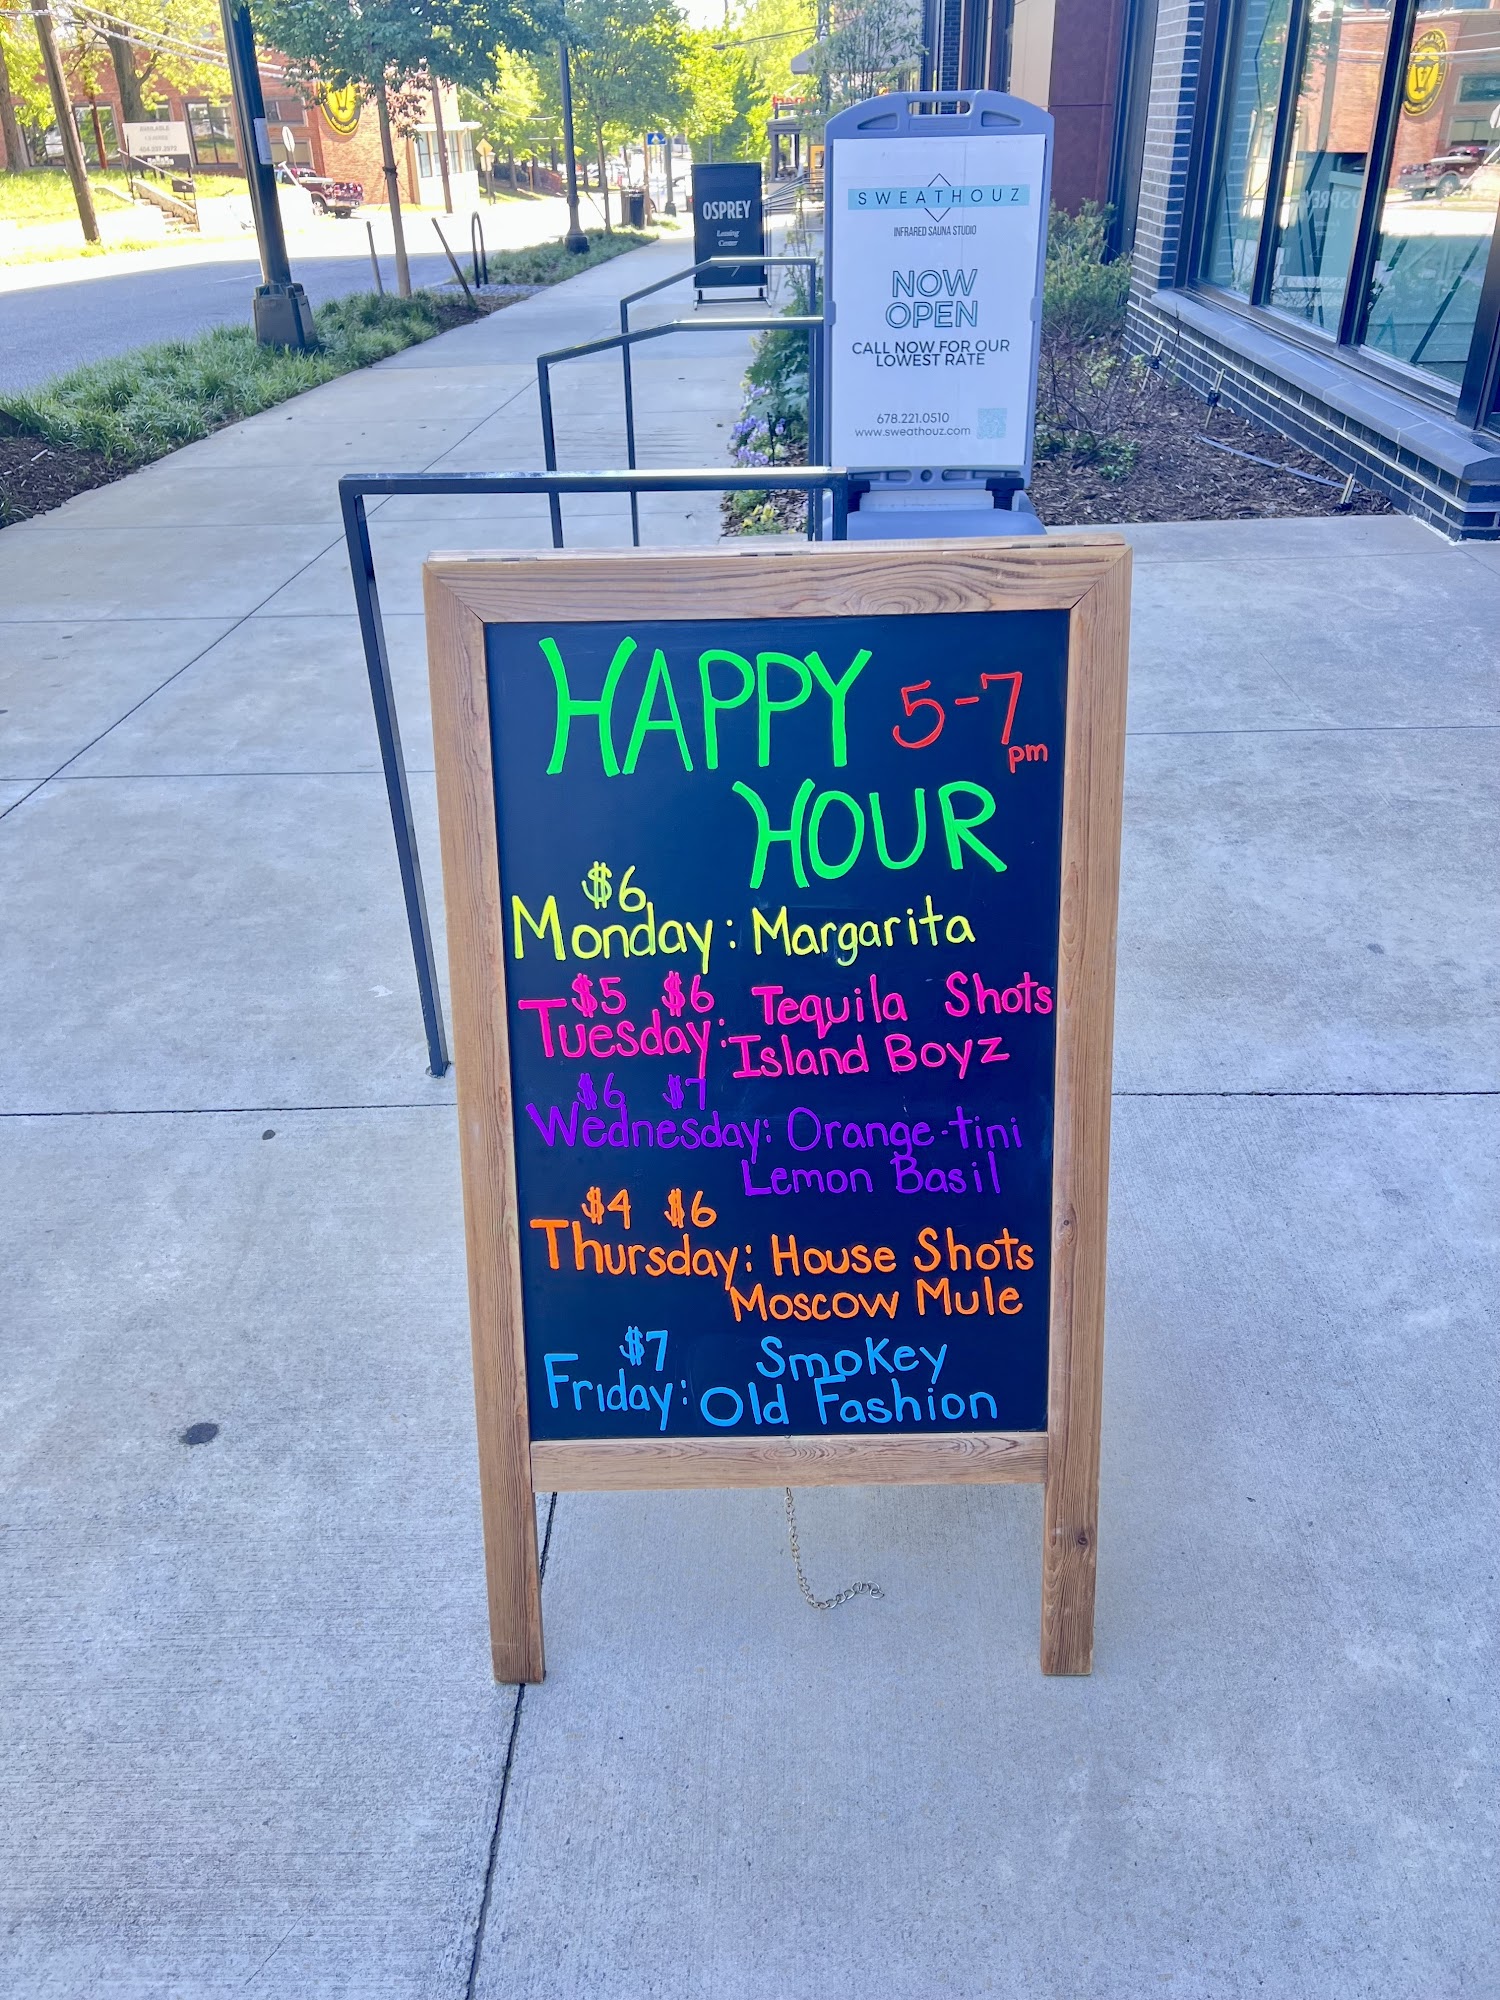 SWEATHOUZ
INFRARED SAUNA STUDIO
NOW
OPEN
CALL NOW FOR OUR
LOWEST RATE
678.221.0510
www.sweathouz.com
OSPREY
Leasing
Center
AVAILABLE
HAPPY 5-7
pm
HOUR
$6
Monday: Margarita
$5 $6 Tequila Shots
Tuesday: Island Boyz
$6 $7
Wednesday: Orange-tini
Lemon Basil
$4 $6
Thursday: House Shots
Moscow Mule
$7 Smokey
Friday: Old Fashion